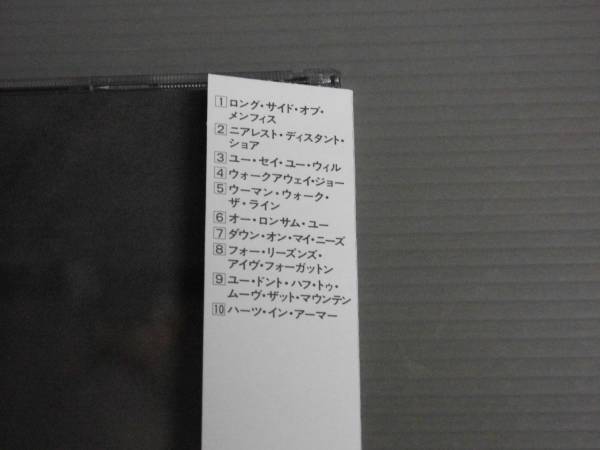 1 ロング・サイド・オブ・
メンフィス
2 ニアレスト・ディスタント・
ショア
3 ユー・セイ・ユー・ウィル
4 ウォークアウェイ・ジョー
5 ウーマン・ウォーク・
ザ・ライン
6 オー・ロンサム・ユー
7 ダウン・オン・マイ・ニーズ
8 フォー・リーズンズ・
アイヴ・フォーガットン
9 ユー・ドント・ハフ・トゥ・
ムーヴ・ザット・マウンテン
10 ハーツ・イン・アーマー